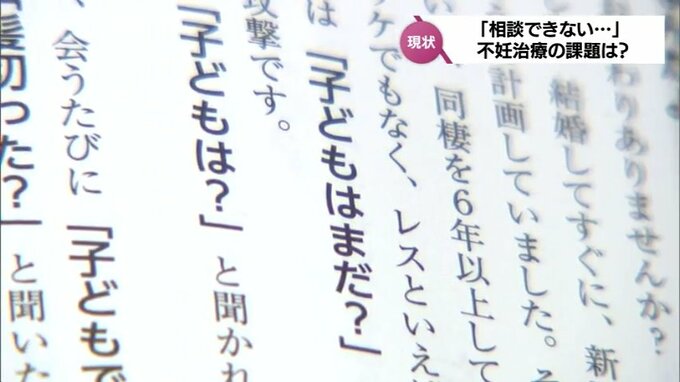 現状
「相談できない…」
不妊治療の課題は?
わりありませんか?
結婚してすぐに、新
計画していました。そ
同棲を6年以上して
ケでもなく、レスといえば
は「子どもはまだ?」
攻撃です。
「子どもは?」と聞かれ
、会うたびに「子どもで
「髪切った?」と聞いた